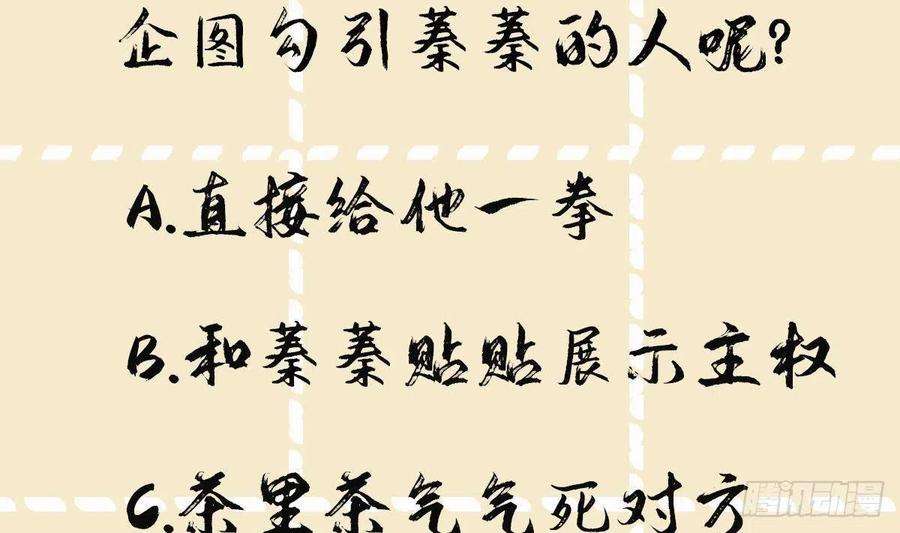 企图勾引蓁蓁的人呢?
A.直接给他一拳
B.和蓁蓁贴贴展示主权
C.茶里茶气气死对方
腾讯动漫